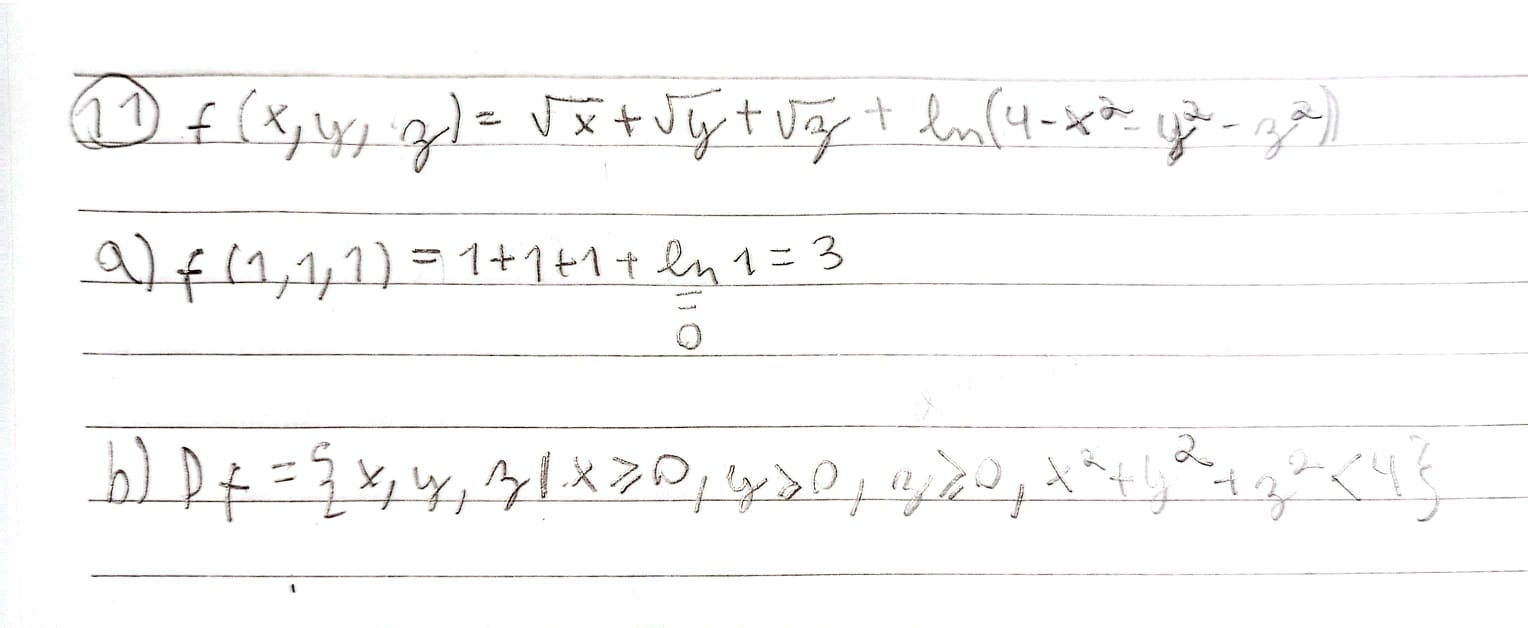 11 f(x,y,z) = √x + √y + √z + ln(4-x²-y²-z²)
a) f(1,1,1) = 1+1+1+ ln 1 = 3
=
0
b) Df = {x,y,z | x≥0, y≥0, z≥0, x²+y²+z²<4}